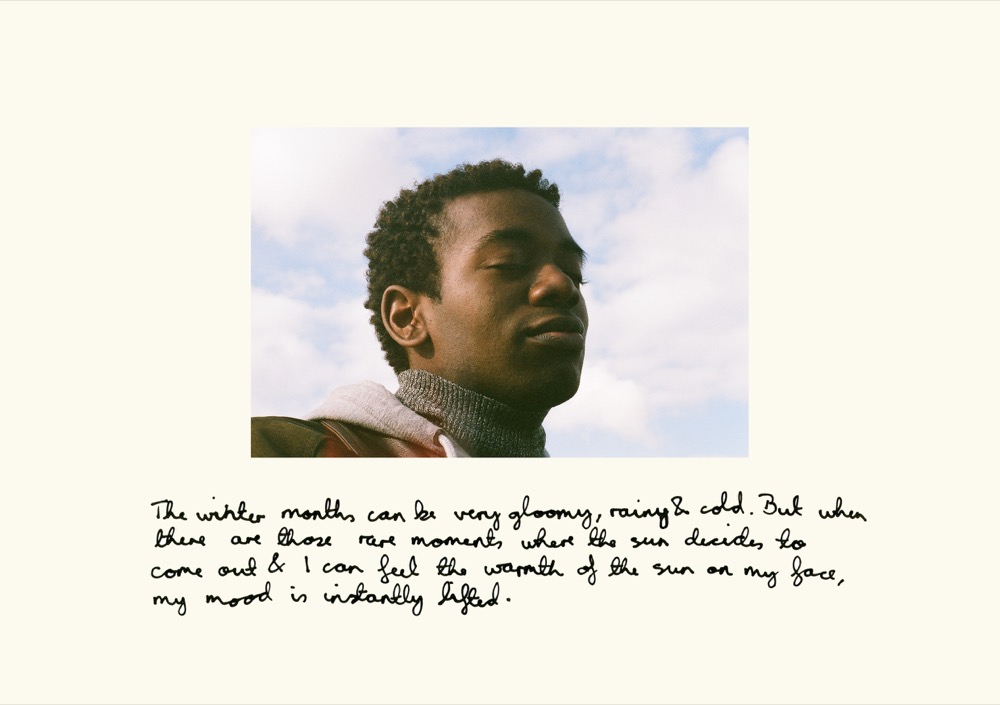 The winter months can be very gloomy, rainy & cold. But when
there are those rare moments where the sun decides to
come out & I can feel the warmth of the sun on my face,
my mood is instantly lifted.